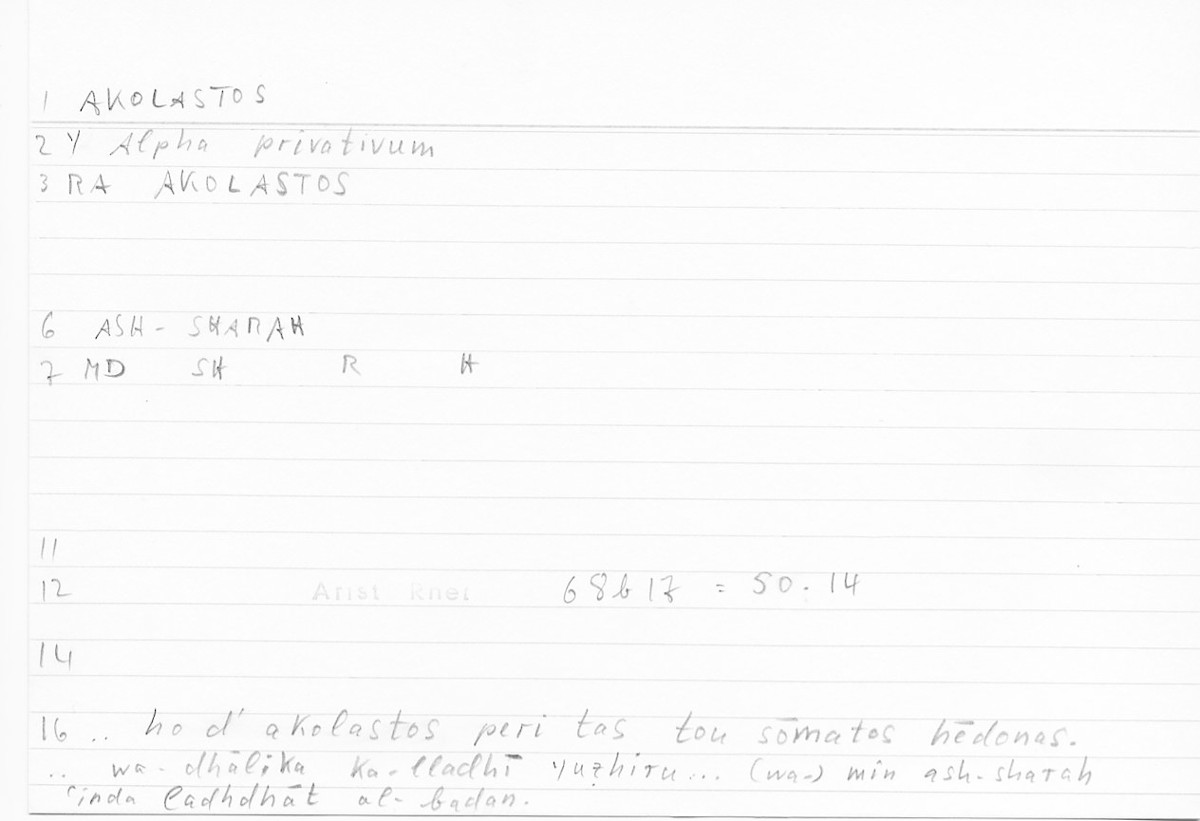 1 AKOLASTOS
2 Y Alpha privativum
3 RA AKOLASTOS
6 ASH-SHARAH
7 MD SH R H
11
12 Arist Rhet 68b17 = 50.14
14
16 .. ho d' akolastos peri tas tou sōmatos hēdonas.
.. wa-dhālika ka-lladhī yuẓhiru... (wa-) min ash-sharah
ʿinda ladhdhāt al-badan.